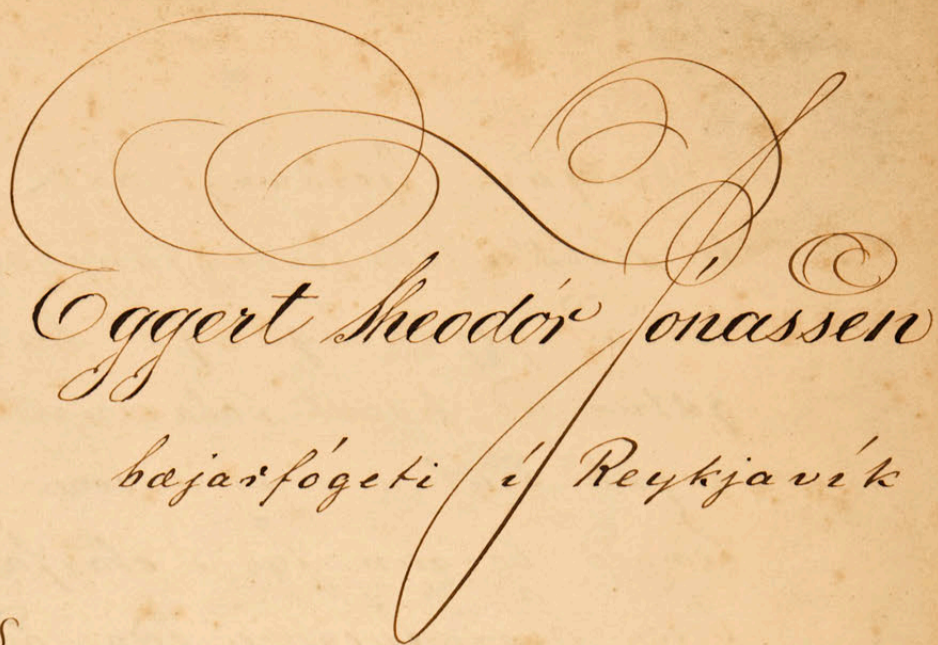 Eggert Theodór Jónassen
bæjarfógeti í Reykjavík